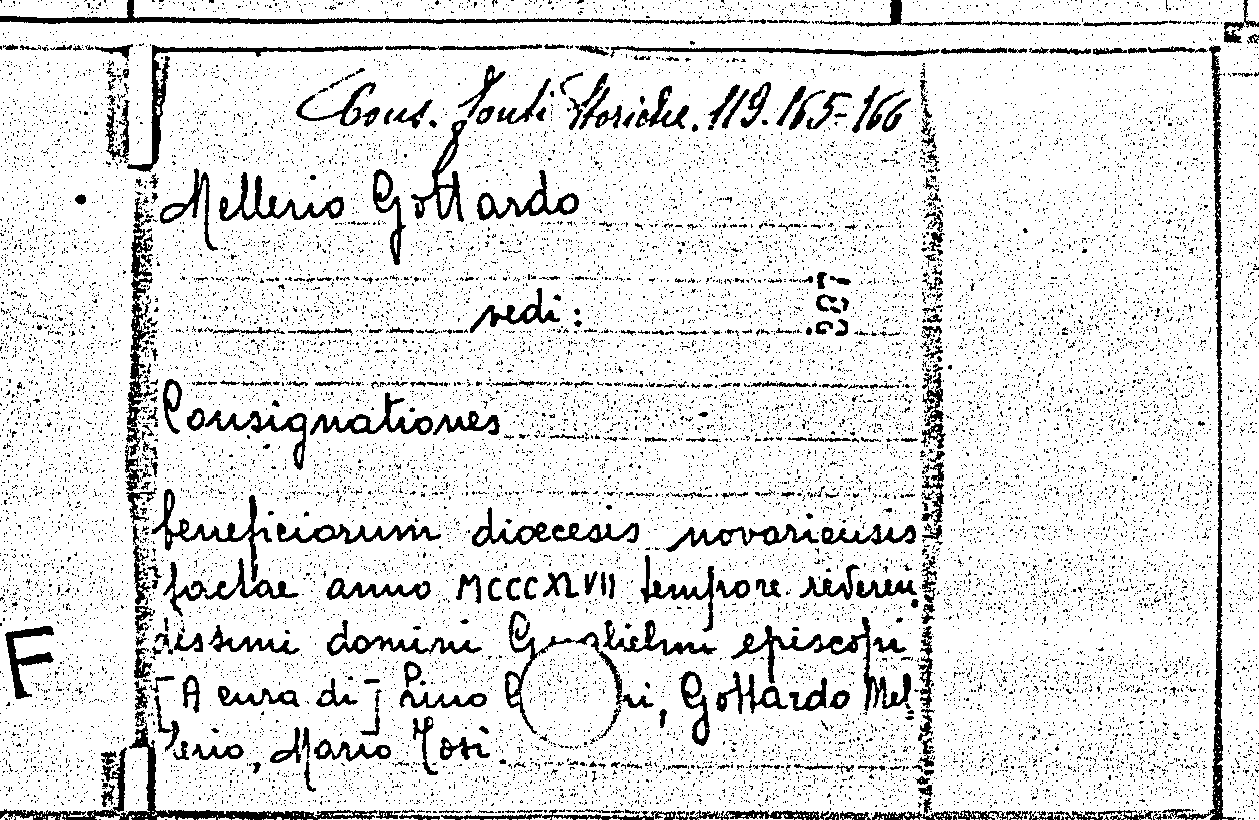 Cons. Fonti Storiche. 119. 165-166
Mellerio Gottardo
vedi:
307
Consignationes
beneficiorum dioecesis novariensis
factae anno MCCCXLVII tempore reveren
dissimi domini Guglielmi episcopi
[A cura di] Lino Gottardo Mel
lerio, Mario Tosi.
F